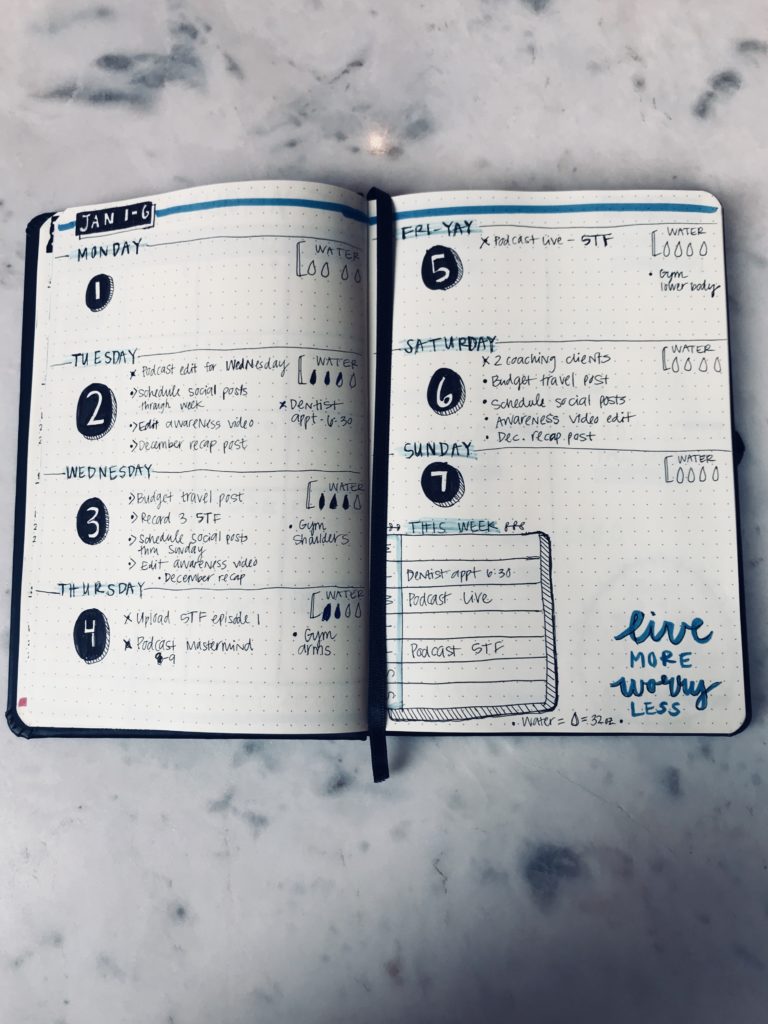 JAN 1-6
MONDAY
1
WATER
TUESDAY
2
x Podcast edit for Wednesday
> Schedule social posts
through week
> Edit awareness video
> December recap post
WATER
x Dentist
appt - 6:30
WEDNESDAY
3
> Budget travel post
> Record 3 STF
> Schedule social posts
thru Sunday
> Edit awareness video
• December recap
WATER
• Gym
shoulders
THURSDAY
4
x Upload STF episode 1
x Podcast Mastermind
8-9
WATER
• Gym
arms
FRI-YAY
5
x Podcast Live - STF
WATER
• Gym
lower body
SATURDAY
6
x 2 coaching clients
• Budget travel post
• Schedule social posts
• Awareness video edit
• Dec. recap post
WATER
SUNDAY
7
WATER
THIS WEEK
Dentist appt 6:30
Podcast Live
Podcast STF
• Water = = 32oz •
live
MORE
worry
LESS